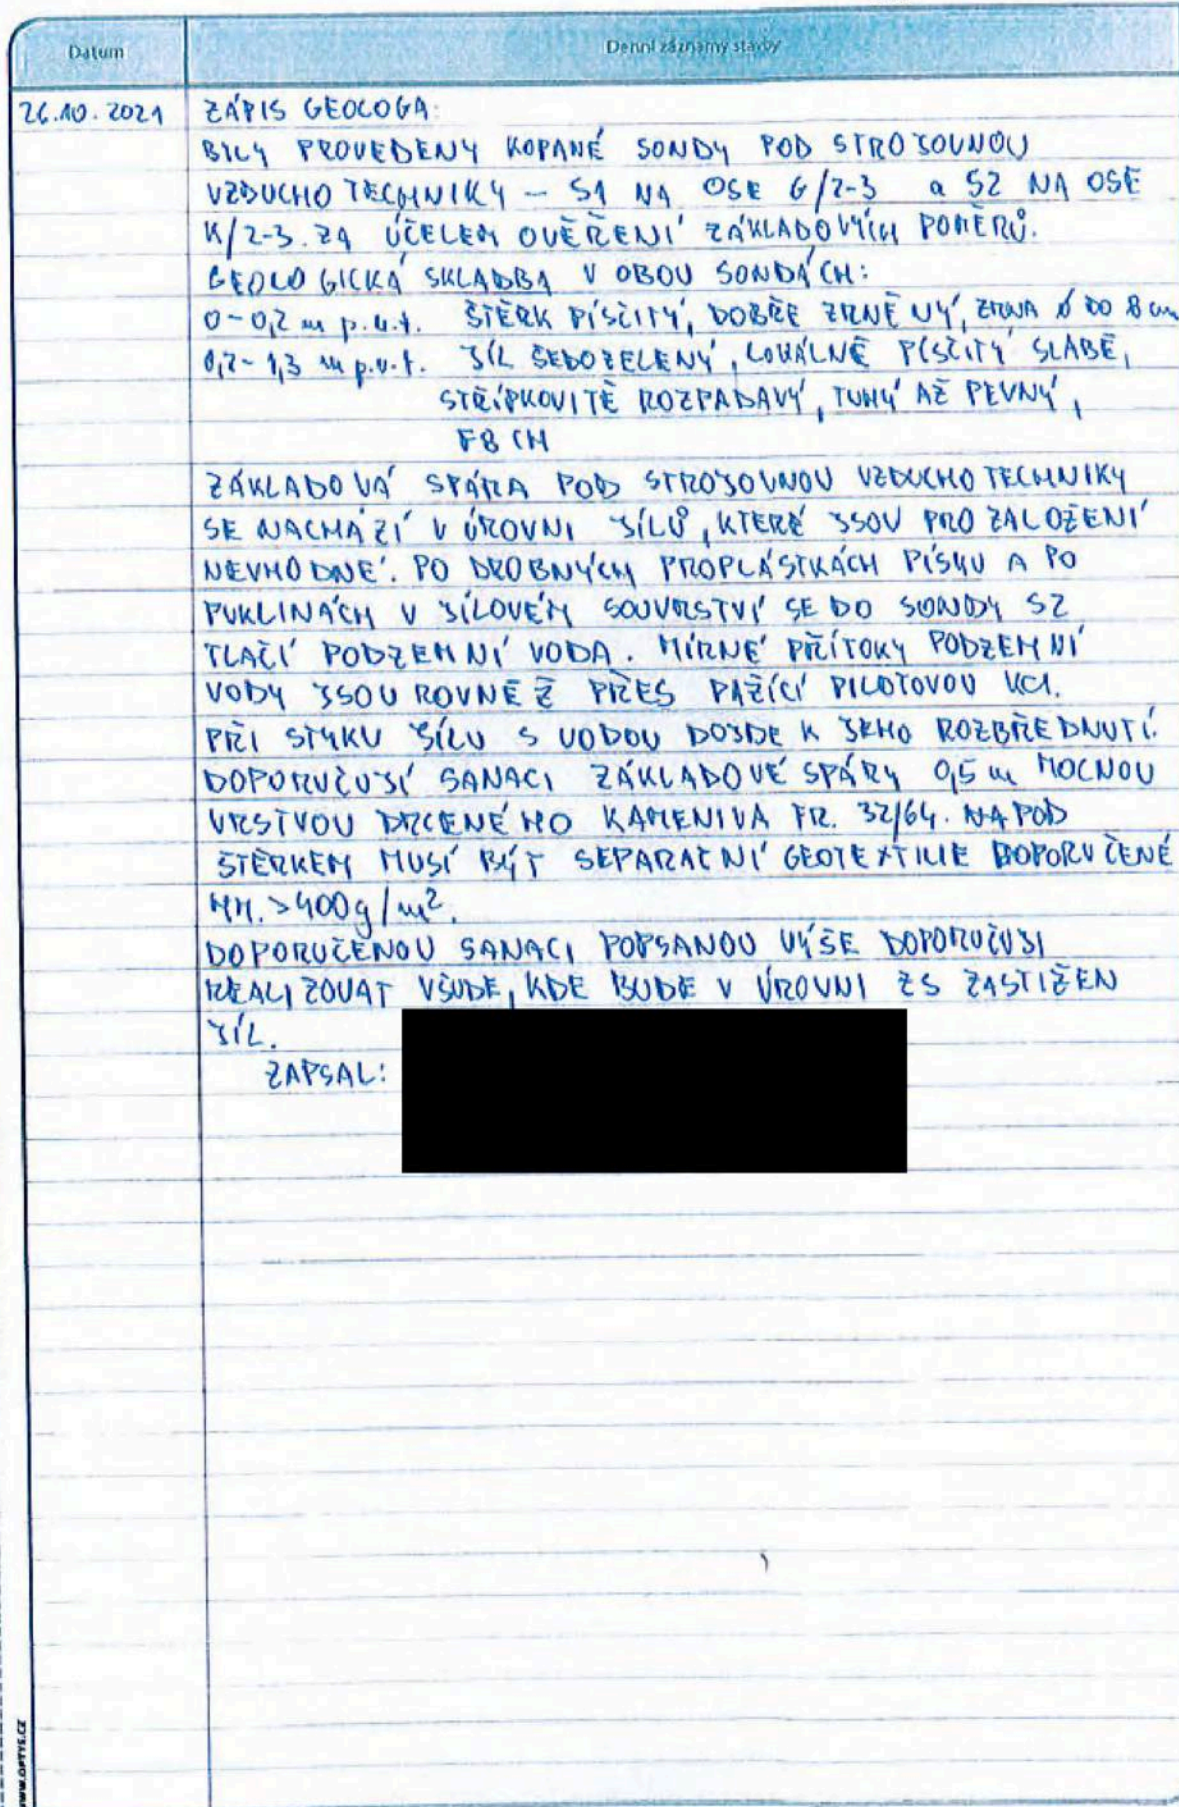 Datum
Denní záznamy stavby
26.10.2021
ZÁPIS GEOLOGA:
BYLY PROVEDENY KOPANÉ SONDY POD STROJOVNOU
VZDUCHOTECHNIKY – S1 NA OSE G/2-3 a S2 NA OSE
K/2-3. ZA ÚČELEM OVĚŘENÍ ZÁKLADOVÝCH POMĚRŮ.
GEOLOGICKÁ SKLADBA V OBOU SONDÁCH:
0-0,2 m p.ú.t. ŠTĚRK PÍSČITÝ, DOBŘE ZRNĚNÝ, ZRNA Ø DO 8 cm
0,2-1,3 m p.ú.t. JÍL ŠEDOZELENÝ, LOKÁLNĚ PÍSČITÝ SLABĚ,
STŘÍPKOVITĚ ROZPADAVÝ, TUHÝ AŽ PEVNÝ,
F8 CH
ZÁKLADOVÁ SPÁRA POD STROJOVNOU VZDUCHOTECHNIKY
SE NACHÁZÍ V ÚROVNI JÍLŮ, KTERÉ JSOU PRO ZALOŽENÍ
NEVHODNÉ. PO DROBNÝCH PROPLÁSTKÁCH PÍSKU A PO
PUKLINÁCH V JÍLOVÉM SOUVRSTVÍ SE DO SONDY S2
TLAČÍ PODZEMNÍ VODA. MÍRNÉ PŘÍTOKY PODZEMNÍ
VODY JSOU ROVNĚŽ PŘES PAŽÍCÍ PILOTOVOU KCI.
PŘI STYKU JÍLU S VODOU DOJDE K JEHO ROZBŘEDNUTÍ.
DOPORUČUJI SANACI ZÁKLADOVÉ SPÁRY 0,5 m MOCNOU
VRSTVOU DRCENÉHO KAMENIVA FR. 32/64. NAPOD
ŠTĚRKEM MUSÍ BÝT SEPARAČNÍ GEOTEXTILIE DOPORUČENÉ
HM. >400g/m².
DOPORUČENOU SANACI POPSANOU VÝŠE DOPORUČUJI
REALIZOVAT VŠUDE, KDE BUDE V ÚROVNI ZS ZASTIŽEN
JÍL.
ZAPSAL:
WWW.OPTYS.CZ